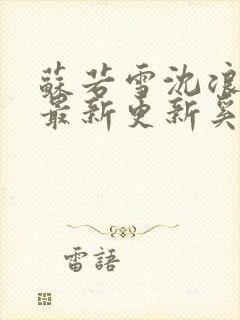 蘇若雪沈浪
最新更新奚
雷語